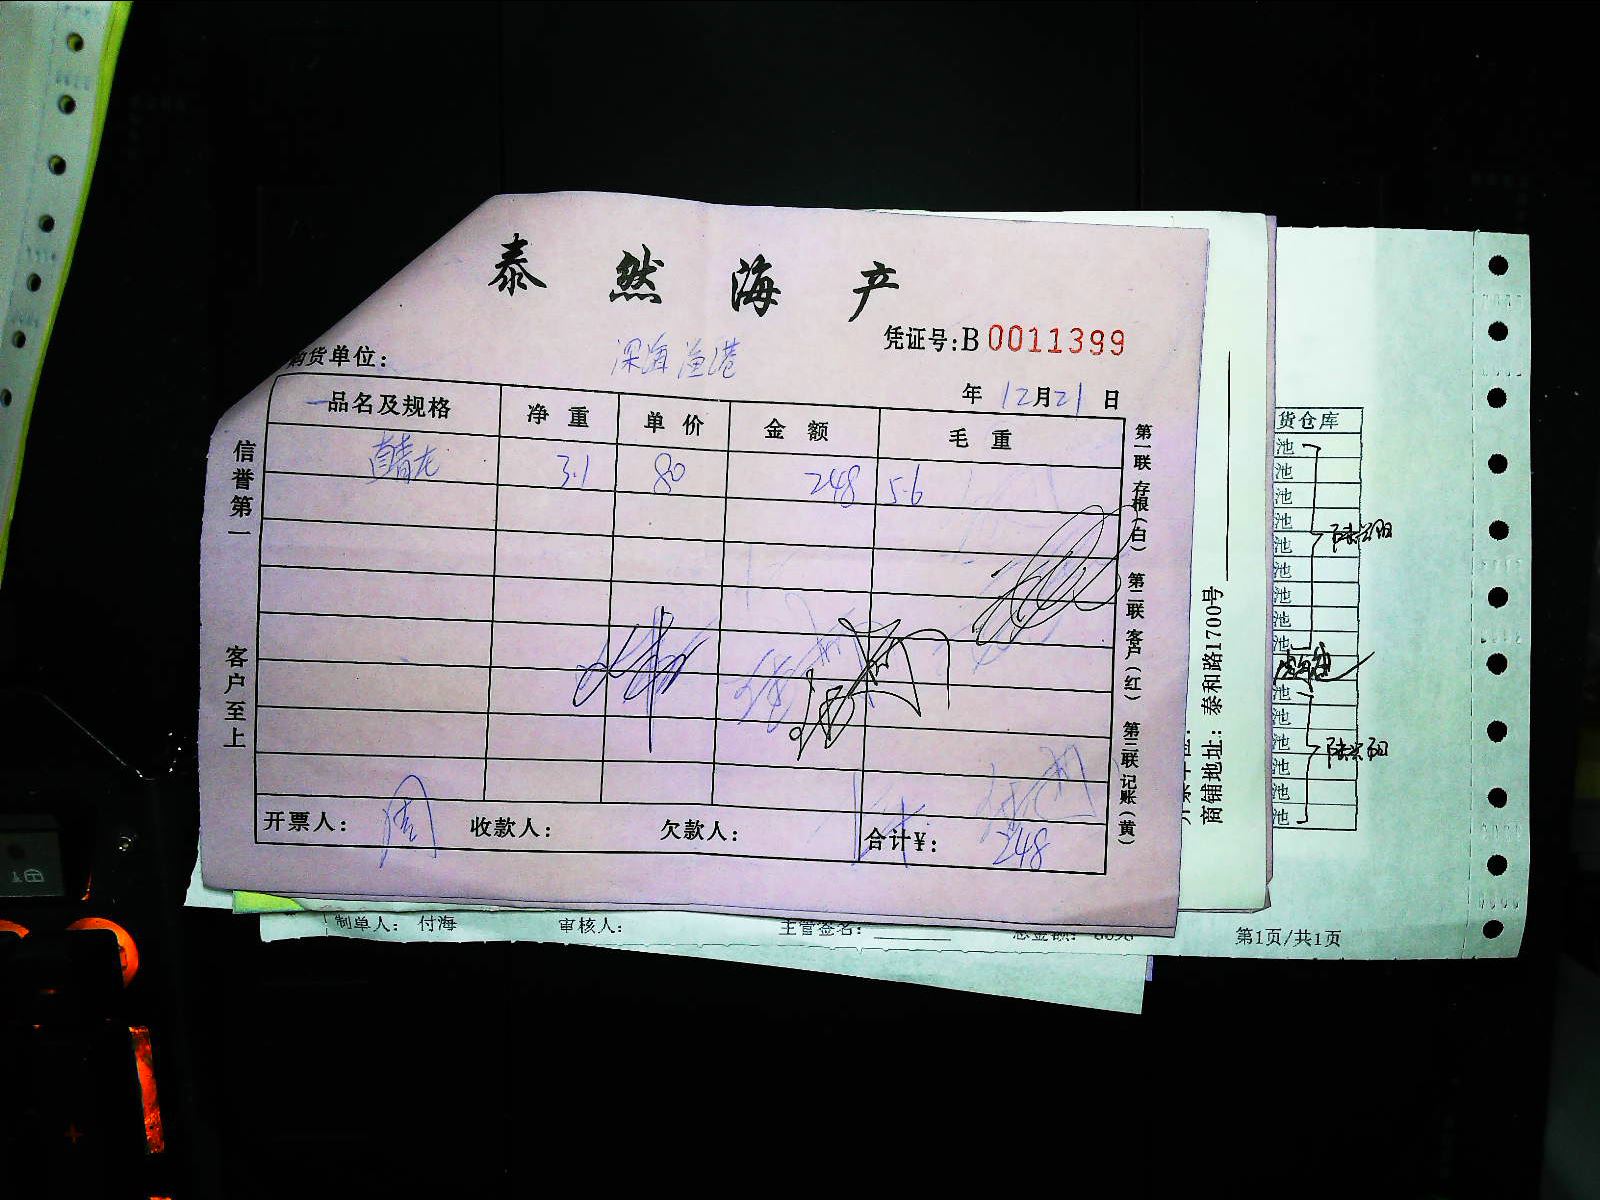 泰然海产
凭证号:B 0011399
购货单位: 深海渔港
年 12月21日
品名及规格 净重 单价 金额 毛重
青龙 3.1 80 248 5.6
开票人: 周 收款人: 欠款人: 合计¥: 248
信誉第一
客户至上
第一联 存根(白) 第二联 客户(红) 第三联 记账(黄)
商铺地址: 泰和路1700号
货仓库
池
池
池
池
池
池
池
池
池
池
池
池
池
池
池
制单人: 付海 审核人: 主管签名: 总金额:
第1页/共1页